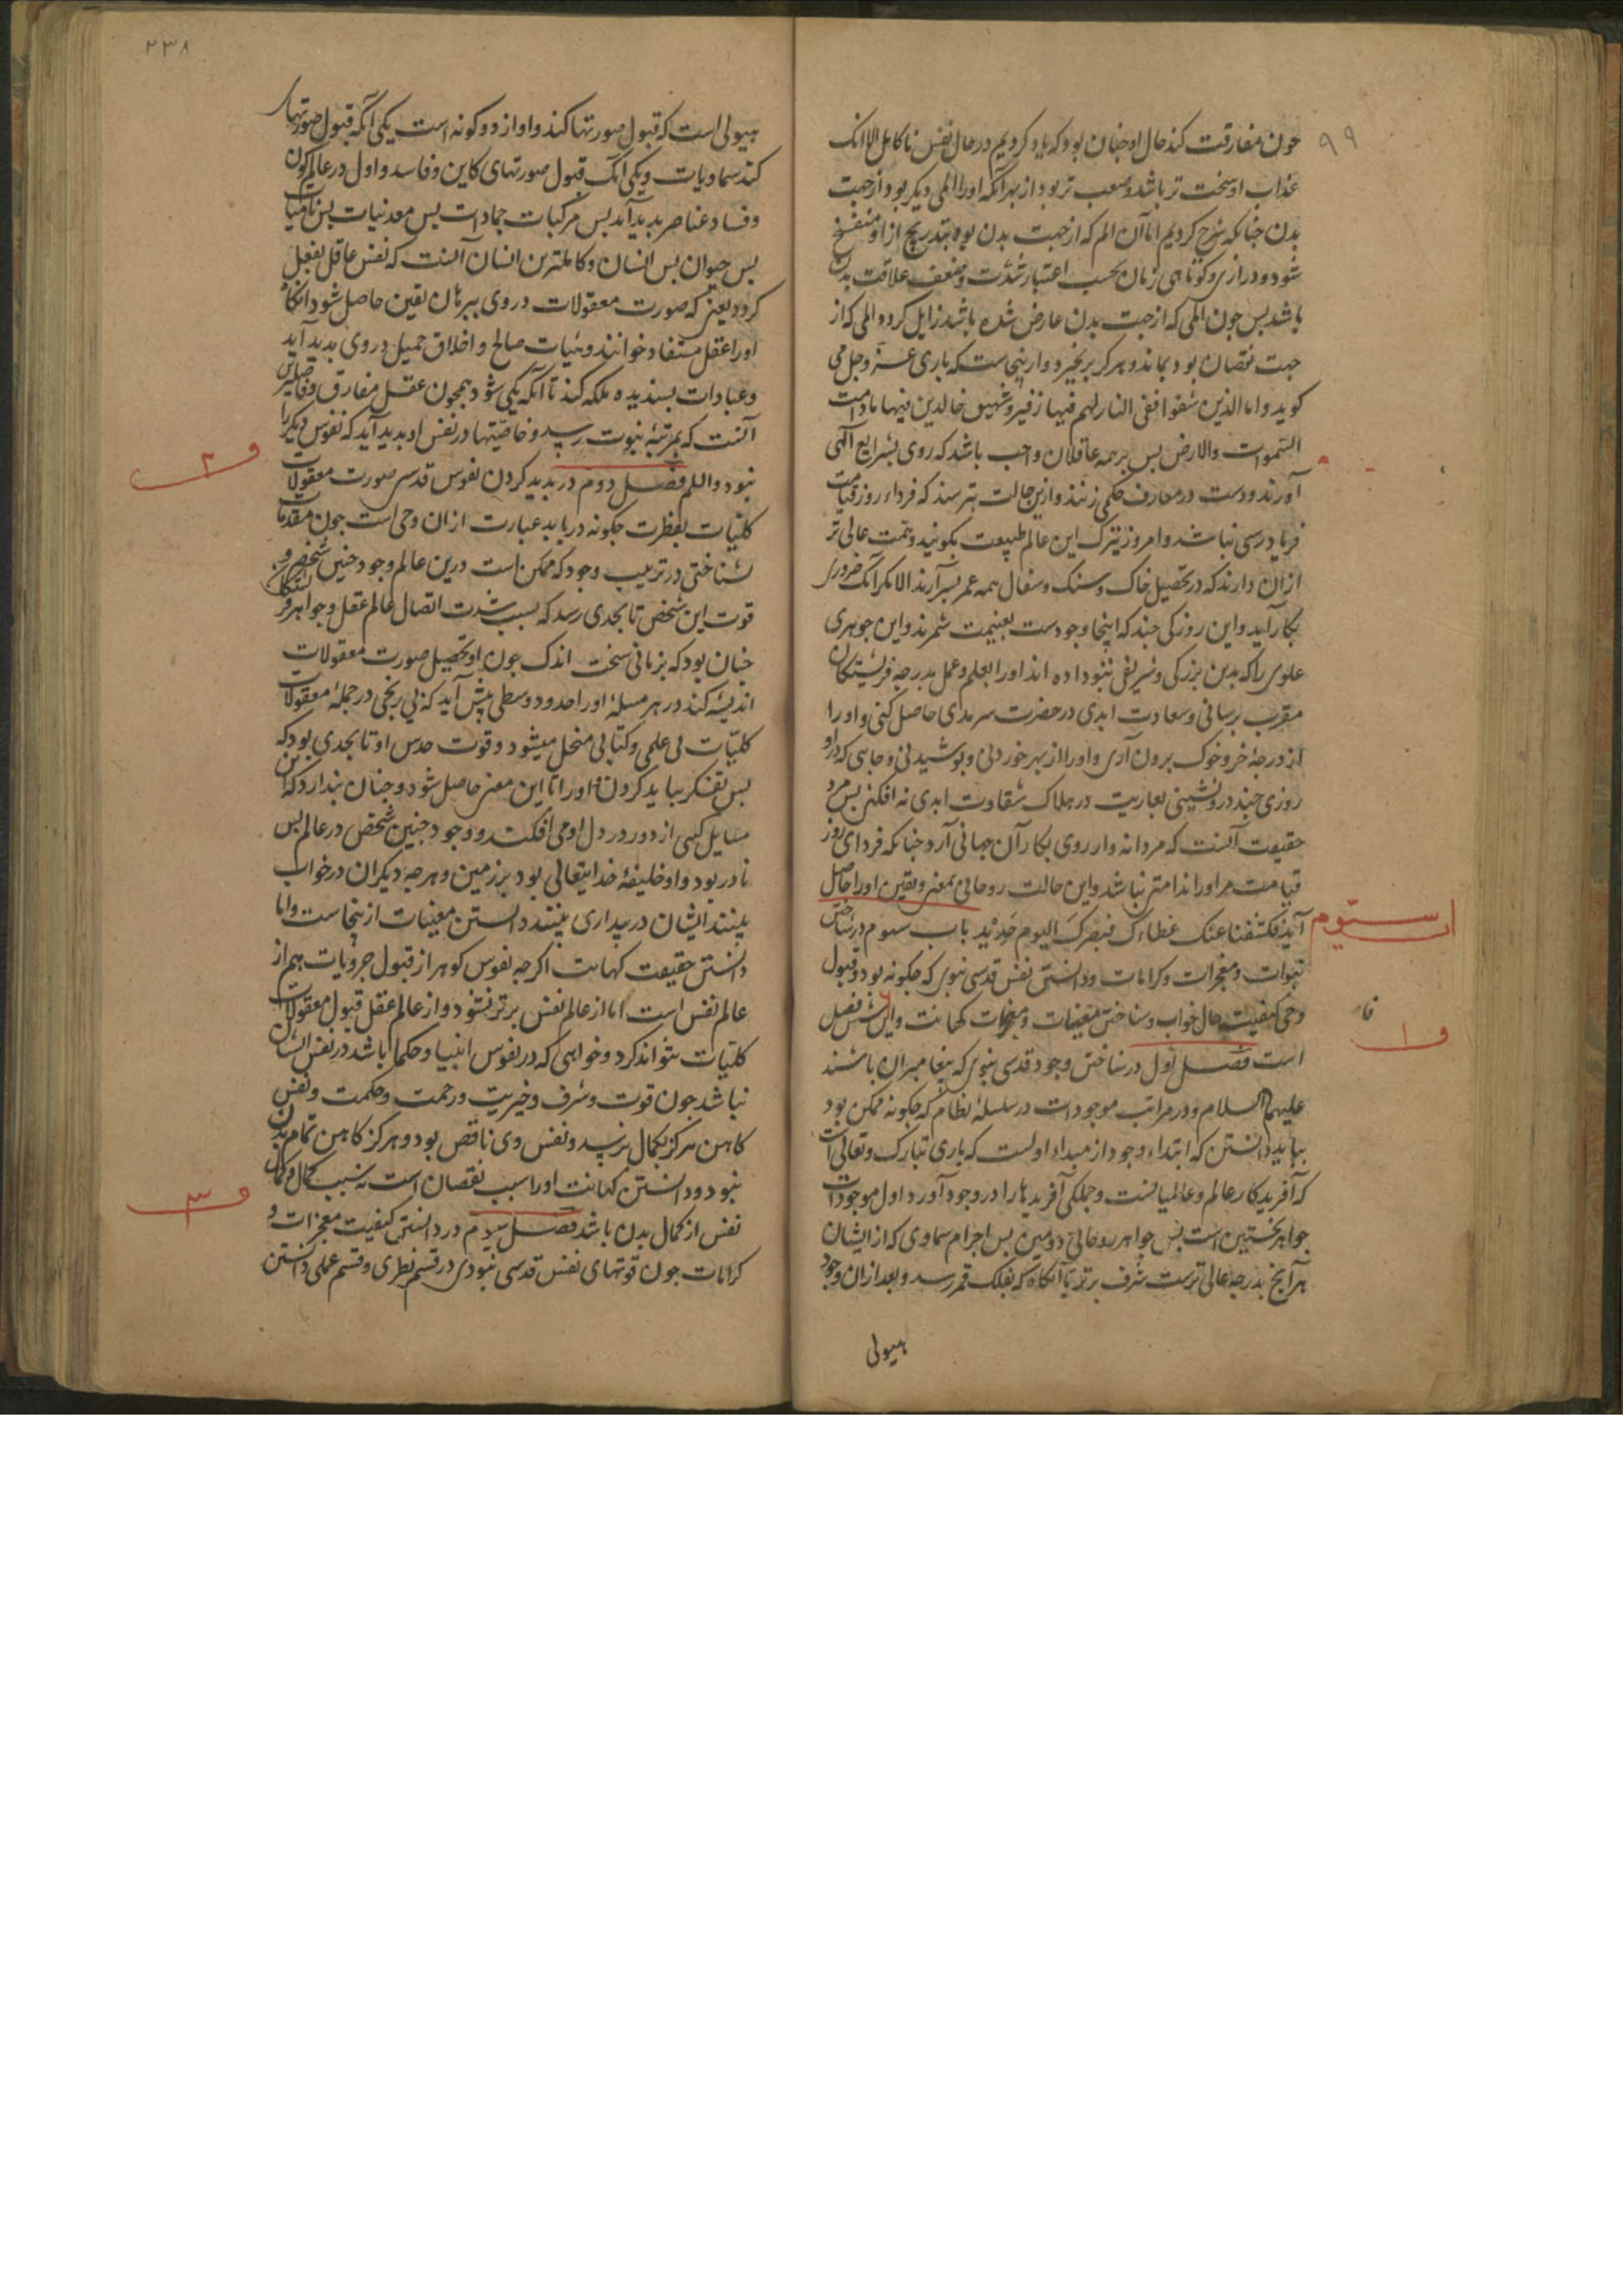 ۹۹
جون مفارقت کند حال او جنان بود که یاد کردیم در حال نفس ناکامل الا آنک
عذاب او سخت تر باشد و صعب تر بود از بهر آنکه او را المی دیکر بود از جهت
بدن جنانکه شرح کردیم اما آن الم که از جهت بدن بود بتدریج از او منفسخ
شود و درازی و کوتاهی زمان بحسب اعتبار شدت و ضعف علاقت بدن
باشد بس جون المی که از جهت بدن عارض شده باشد زایل کردد المی که از
جهت نقصان بود بماند و هرکز برنخیزد و از ینجاست که باری عز و جل می
کوید و اما الذین شقوا ففی النار لهم فیها زفیر و شهیق خالدین فیها ما دامت
السموات والارض بس بر همه عاقلان واجب باشد که روی بشرایع الهی
آورند و دست در معارف حکمی زنند و ازین حالت بترسند که فرداء روز قیامت
فریادرسی نباشد و امروز بترک این عالم طبیعت بکویند و همت عالی تر
از آن دارند که در تحصیل خاک و سنک و سفال همه عمر بسر آرند الا مکر آنک ضروری
بکار آید و این روزکی جند که اینجا وجودست بغنیمت شمرند و این جوهری
علوی را که بدین بزرکی و شریفی بتو داده اند او را بعلم و عمل بدرجه فریشتکان
مقرب رسانی و سعادت ابدی در حضرت سرمدی حاصل کنی و او را
از درجهٔ خر و خوک برون آری و او را از بهر خوردنی و بوشیدنی و جایی که در او
روزی جند در و نشینی بعاریت در هلاک شقاوت ابدی نه افکنی بس مرد
حقیقت آنست که مردانه وار روی بکار آن جهانی آرد جنانکه فردای روز
قیامت مر او را ندامتی نباشد و این حالت روحانی بمعنی و یقین او را حاصل
آید فکشفنا عنک غطاءک فبصرک الیوم حدید باب سوم در شناختن
نبوات و معجزات و کرامات و دانستن نفس قدسی نبوی که جکونه بود و قبول
وحی کیفیت حال خواب و شناختن مغیبات و کهانت و این شش فصل
است فصل اول در شناختن وجود قدسی نبوی که بیغامبران باشند
علیهم السلام و در مراتب موجودات در سلسلهٔ نظام که جکونه ممکن بود
بباید دانستن که ابتداء وجود از مبداء اولست که باری تبارک و تعالی است
که آفریدکار عالم و عالمیانست و جملکی آفریدها را در وجود آورد اول موجودات
جواهر نخستین است بس جواهر روحانی دومین بس اجرام سماوی که از ایشان
هر آنج بدرجه عالی ترست شرف برتر تا آنکاه که بفلک قمر رسد و بعد از ان وجود
هیولی
ف ۱
۲۳۸
هیولی است که قبول صورتها کند و او از دو کونه است یکی آنکه قبول صورتهاء
کند سماویات و یکی آنک قبول صورتهای کاین و فاسد و اول در عالم کون
و فساد عناصر بدید آید بس مرکبات جمادات بس معدنیات بس نامیات
بس حیوان بس انسان و کاملترین انسان آنست که نفس عاقل بفعل
کردد یعنی که صورت معقولات در وی ببرهان یقین حاصل شود آنکاه
او را عقل مستفاد خوانند و هیات صالح و اخلاق جمیل در وی بدید آید
و عبادات بسندیده ملکه کند تا آنکه یکی شود همجون عقل مفارق و فاضلترین
آنست که بمرتبهٔ نبوت رسد و خاصیتها در نفس او بدید آید که نفوس دیکر را
نبود و اللم فصل دوم در بدید کردن نفوس قدسی صورت معقولات
کلیات بفطرت جکونه دریابد عبارت از ان وحی است جون مقدمات
شناختی در ترتیب وجود که ممکن است درین عالم وجود جنین شخص و
قوت این شخص تا بحدی رسد که بسبب شدت اتصال عالم عقل و جواهر فرشتکان
جنان بود که بزمانی سخت اندک جون او تحصیل صورت معقولات
اندیشه کند در هر مسلهٔ او را حدود وسطی بیش آید که بی رنجی در جملهٔ معقولات
کلیات بی علمی و کتابی منحل میشود و قوت حدس او تا بحدی بود که
بس تفکر نباید کردن او را تا این معنی حاصل شود و جنان بندارد که این
مسایل کسی از دور در دل او می افکند و وجود جنین شخص در عالم بس
نادر بود و او خلیفهٔ خدایتعالی بود بر زمین و هرجه دیکران در خواب
بینند ایشان در بیداری بینند دانستن مغیبات از ینجاست و اما
دانستن حقیقت کهانت اکرجه نفوس کوهر از قبول جزویات هم از
عالم نفس است اما از عالم نفس برتر نشود و از عالم عقل قبول معقولات
کلیات نتواند کرد و خوابی که در نفوس انبیا و حکما باشد در نفس ایشان
نباشد جون قوت و شرف و خیریت و رحمت و حکمت و نفس
کاهن هرکز بکمال نرسد و نفس وی ناقص بود و هرکز کاهن تمام بدن
نبود و دانستن کهانت او را سبب نقصان است نه سبب کمال و کمال
نفس از کمال بدن باشد فصل سیوم در دانستن کیفیت معجزات و
کرامات جون قوتهای نفس قدسی نبودی در قسم نظری و قسم عملی دانستن
ف ۲
ف ۳